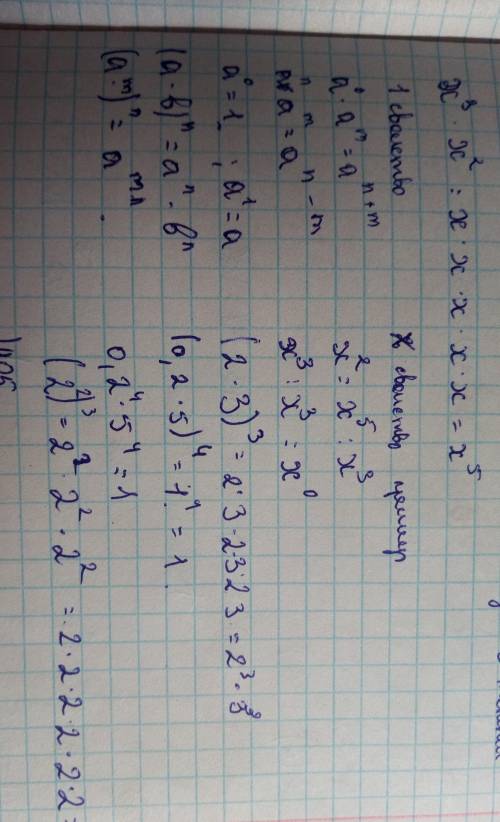 x³ · x² = x · x · x · x · x = x⁵
1 свойство
aⁿ · aᵐ = aⁿ⁺ᵐ
aⁿ : aᵐ = aⁿ⁻ᵐ
a⁰ = 1 ; a¹ = a
(a · b)ⁿ = aⁿ · bⁿ
(aᵐ)ⁿ = aᵐⁿ.
свойство пример
x² = x⁵ : x³
x³ : x³ = x⁰
(2 · 3)³ = 2 · 3 · 2 · 3 · 2 3 = 2³ · 3³
(0,2 · 5)⁴ = 1⁴ = 1.
0,2⁴ · 5⁴ = 1
(2²)³ = 2² · 2² · 2² = 2 · 2 · 2 · 2 · 2 · 2 =